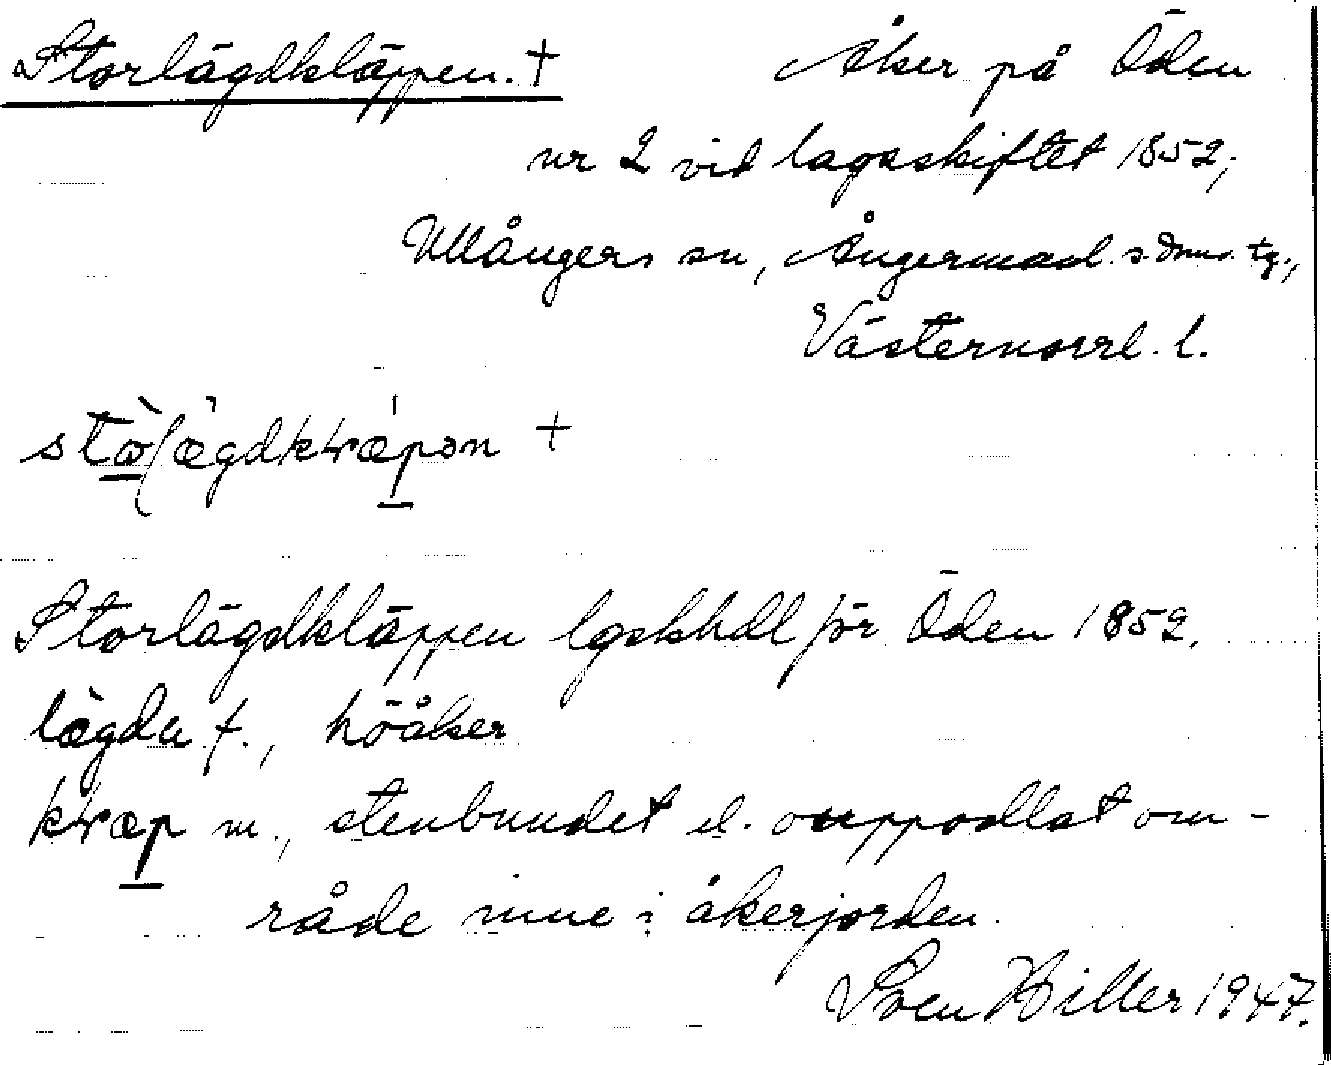 Storlägdkläppen. † Åker på Öden
nr 2 vid lagaskiftet 1852;
Ullångers sn, Ångermanl. s. dms. tg.,
Västernorrl. l.
†
Storlägdkläppen lgskhdl för Öden 1852.
lägdu f., höåker
m., stenbundet el. ouppodlat om-
råde inne i åkerjorden.
Sven Hiller 1947.